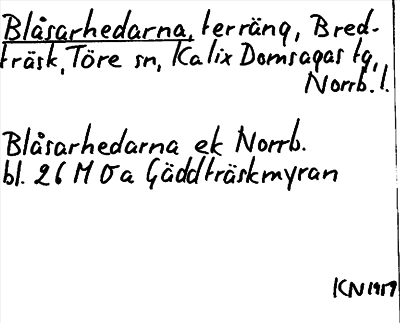 Blåsarhedarna, terräng, Bred-
träsk, Töre sn, Kalix Domsagas tg,
Norrb. l.
Blåsarhedarna ek Norrb.
bl. 26 M 0 a Gäddträskmyran
KN 1959